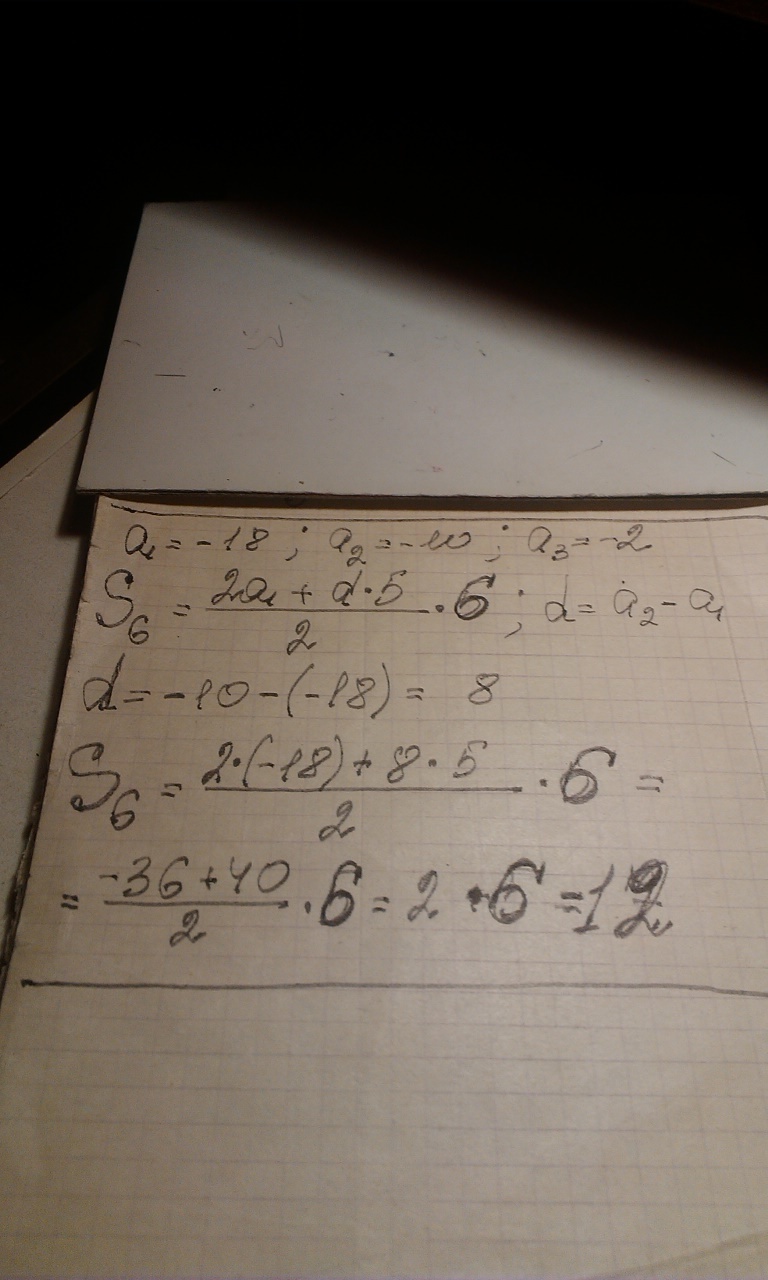 a₁ = -18 ; a₂ = -10 ; a₃ = -2
S₆ = (2a₁ + d·5)/2 · 6 ; d = a₂ - a₁
d = -10 - (-18) = 8
S₆ = (2·(-18) + 8·5)/2 · 6 =
= (-36 + 40)/2 · 6 = 2 · 6 = 12